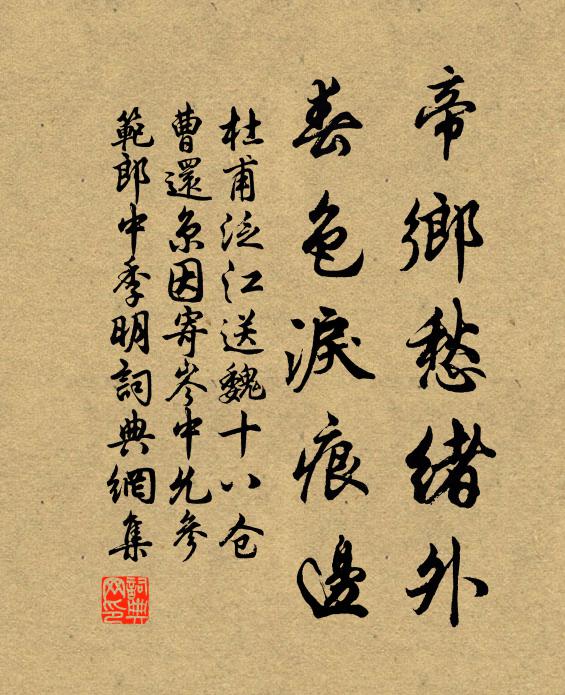 帝鄉愁緒外
春色淚痕邊
杜甫泛江送魏十八仓
曹還京因寄岑中允參
範郎中季明詞典網集
詞典网印